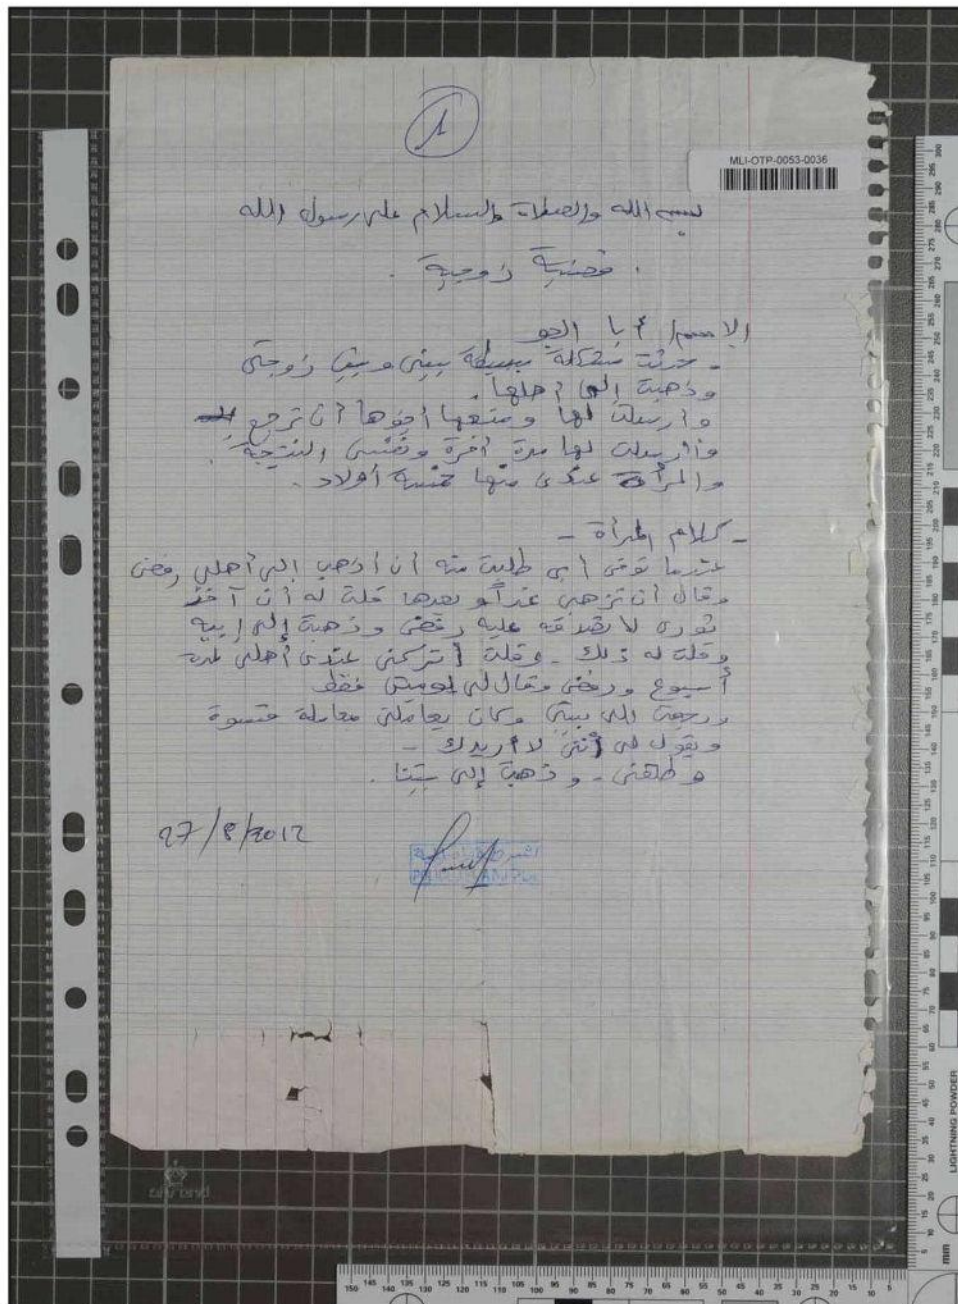 ١
MLI-OTP-0053-0036
بسم الله والصلاة والسلام على رسول الله
. قضية زوجية .
الاسم / أبا الجو
- حدثت مشكلة بسيطة بيني وبين زوجتى
وذهبت إلى أهلها .
وارسلت لها ومنعها أخوها أن ترجع
وأرسلت لها مرة أخرة ونفس النتيجة .
والمرأة عندى منها خمسة أولاد .
- كلام المرأة -
عندما توفى أبى طلبت منه أن أذهب الى أهلى رفض
وقال أن تزهبى غداً و بعدها قلت له أن آخذ
ثورى لا تصدقه عليه رفض وذهبت إلى ابيه
وقلت له ذلك - وقلت أتركنى عندى أهلى لمدة
أسبوع ورفض وقال لى يومين فقط
ورجعت إلى بيتى وكان يعاملنى معاملة قسوة
ويقول لى أننى لا أريدك -
و طلقنى - وذهبت إلى بيتنا .
27/8/2012
LIGHTNING POWDER
mm